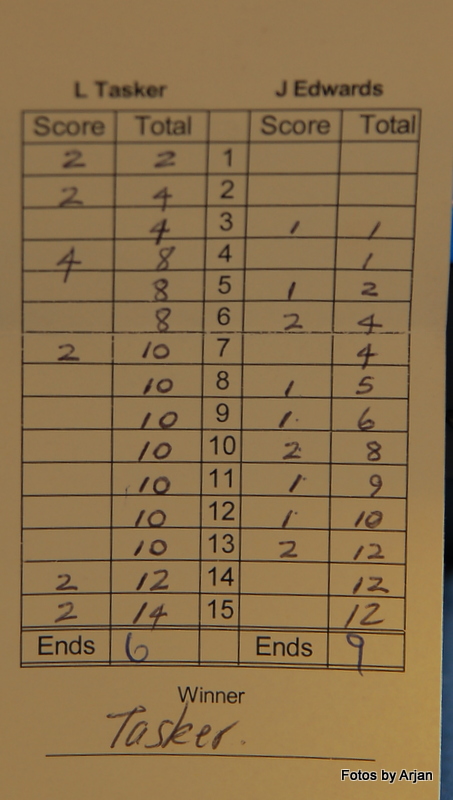 L Tasker J Edwards
Score Total Score Total
2 2 1
2 4 2
4 3 1 1
4 8 4 1
8 5 1 2
8 6 2 4
2 10 7 4
10 8 1 5
10 9 1 6
10 10 2 8
10 11 1 9
10 12 1 10
10 13 2 12
2 12 14 12
2 14 15 12
Ends 6 Ends 9
Winner
Tasker.
Fotos by Arjan